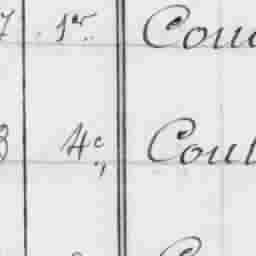 7 1er Cou
3 4e Cou